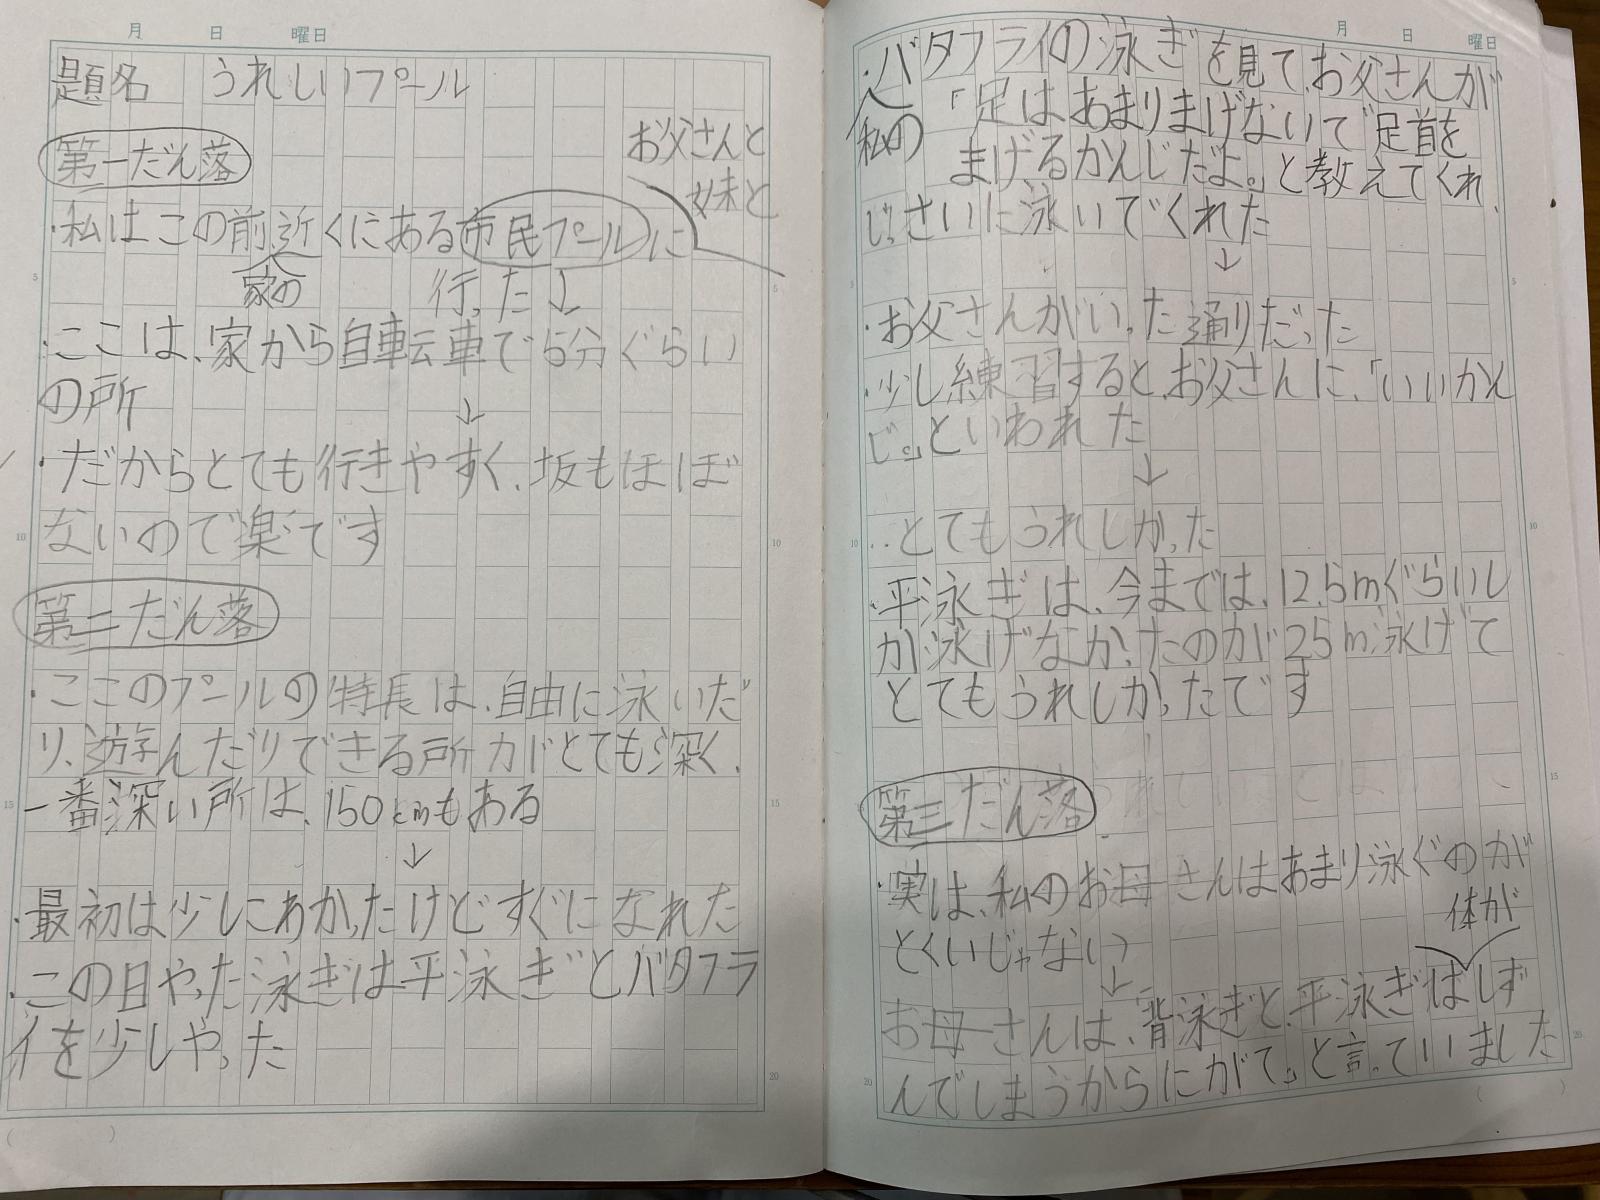 月 日 曜日
題名 うれしいプール
第一だん落
お父さんと
妹と
・私はこの前、近くにある市民プールに
家の
行った↓
・ここは、家から自転車で5分ぐらい
の所
↓
・だからとても行きやすく、坂もほぼ
ないので楽です
第二だん落
・ここのプールの特長は、自由に泳いだ
り、遊んだりできる所がとても深く、
一番深い所は、150cmもある
↓
・最初は少しこわかったけどすぐになれた
・この日やった泳ぎは平泳ぎとバタフラ
イを少しやった
月 日 曜日
・バタフライの泳ぎを見て、お父さんが
私の
「足はあまりまげないで足首を
まげるかんじだよ。」と教えてくれ、
じっさいに泳いでくれた
↓
・お父さんがいった通りだった
・少し練習すると、お父さんに、「いいかん
じ。」といわれた
↓
・とてもうれしかった
・平泳ぎは、今までは、12.5mぐらいし
か泳げなかったのが25m泳げて
とてもうれしかったです
第三だん落
・実は、私のお母さんはあまり泳ぐのが
とくいじゃない
↓
体が
お母さんは、「背泳ぎと、平泳ぎはしず
んでしまうからにがて。」と言っていました